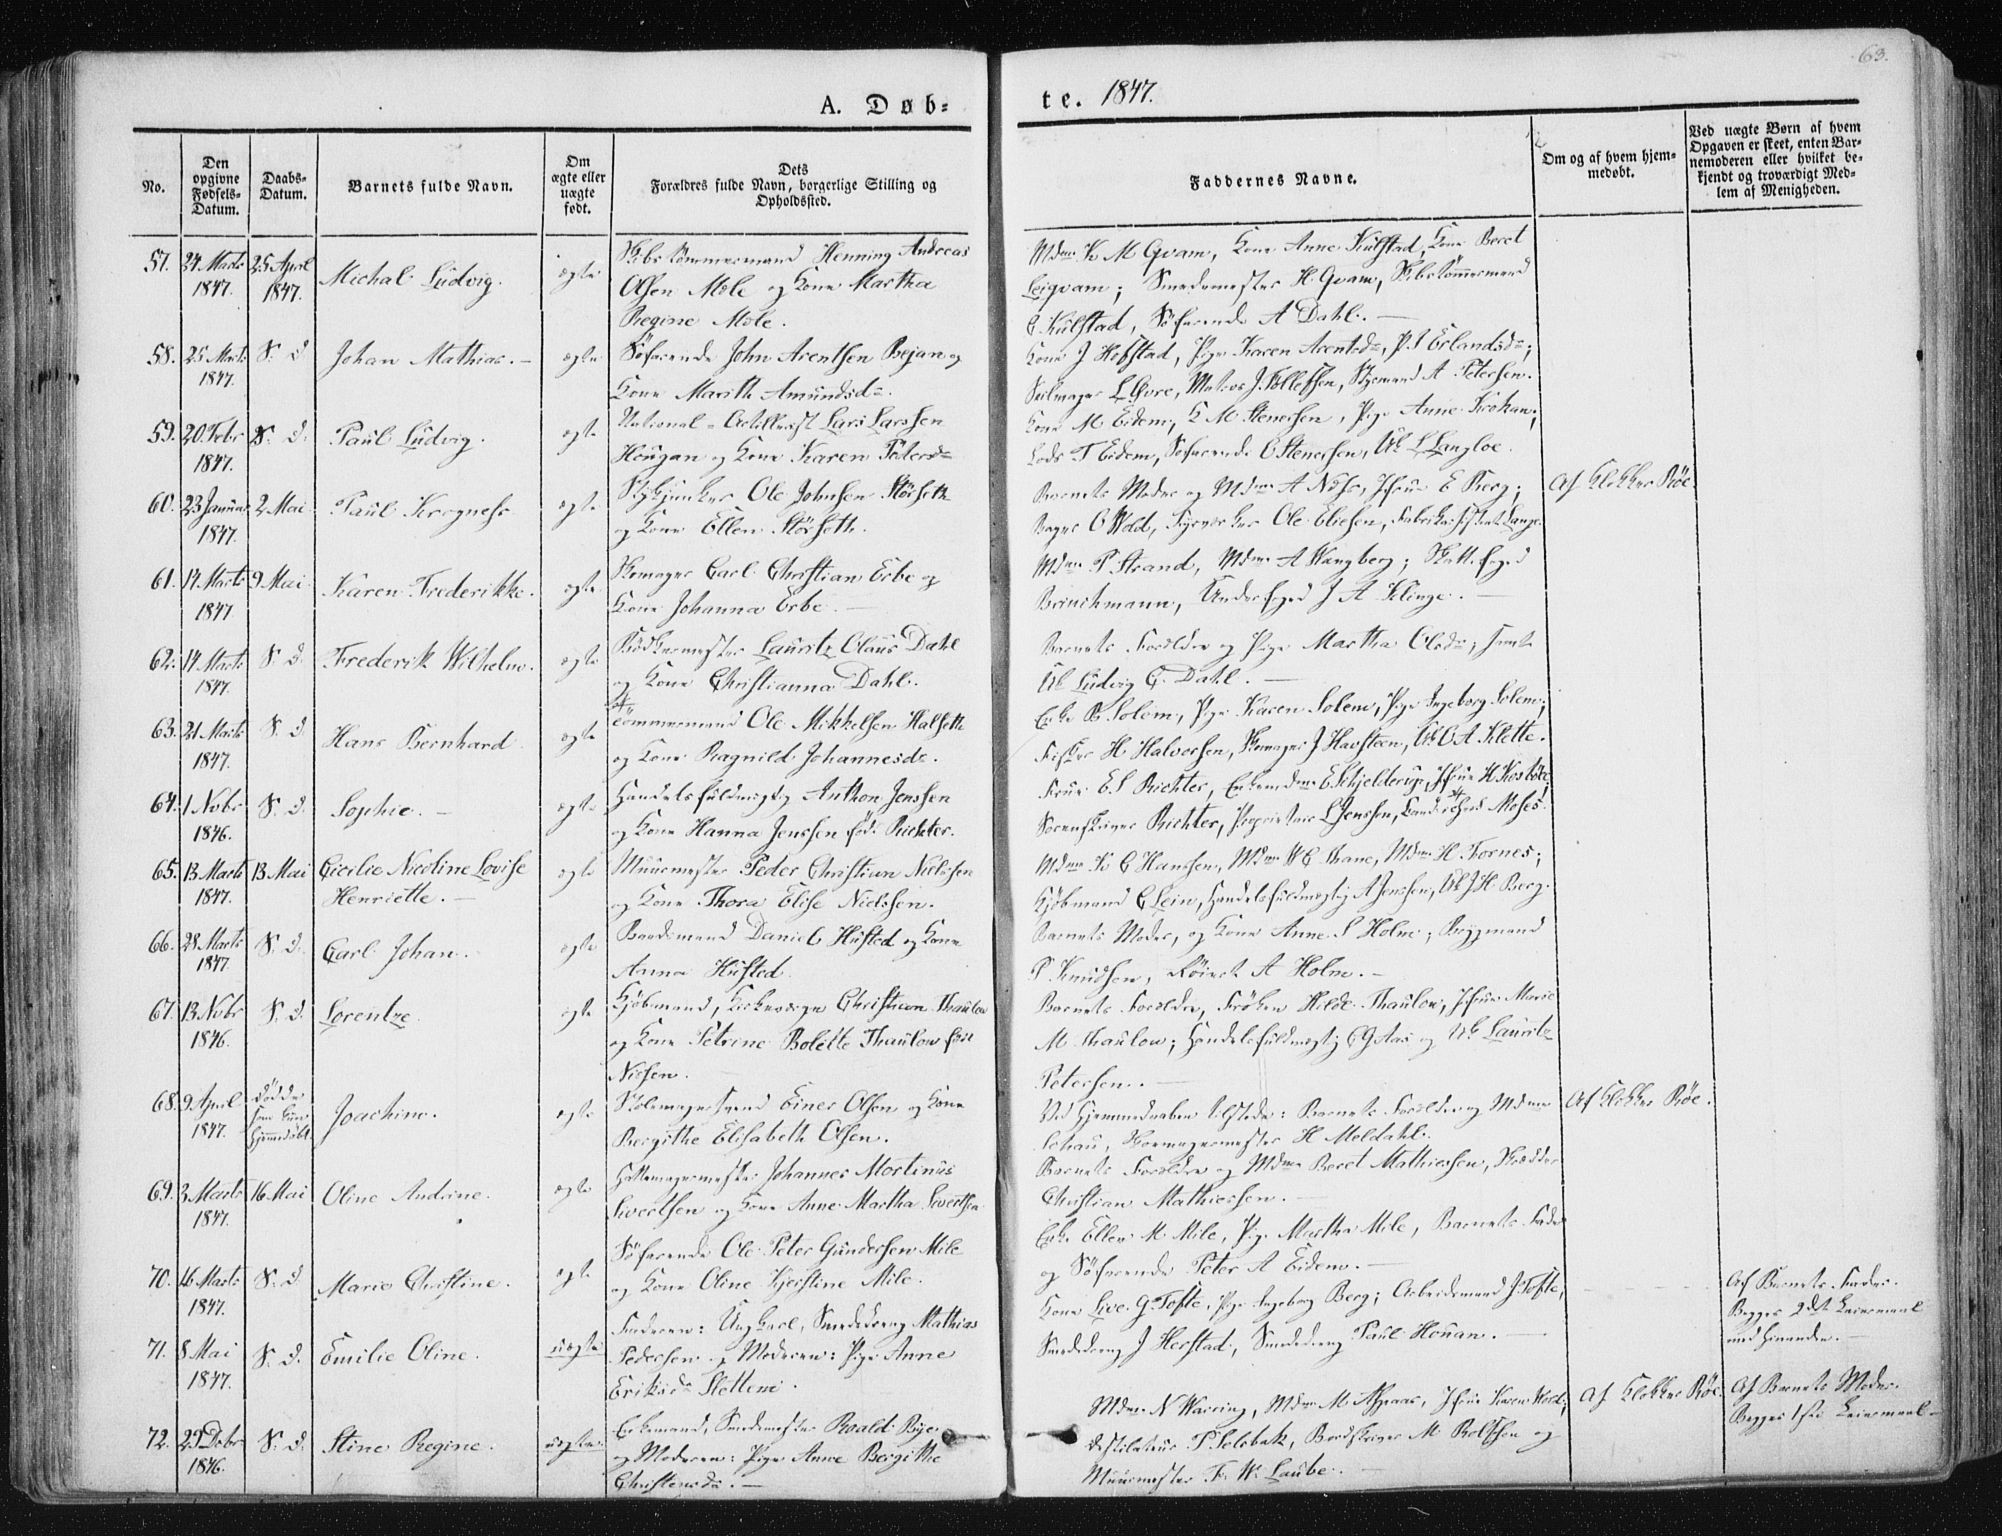 63.
A. Døb=
te. 1847.
No.
Den opgivne Fødsels-Datum.
Daabs-Datum.
Barnets fulde Navn.
Om ægte eller uægte født.
Dets Forældres fulde Navn, borgerlige Stilling og Opholdssted.
Faddernes Navne.
Om og af hvem hjemmedøbt.
Ved uægte Børn af hvem Opgaven er skeet, enten Barnemoderen eller hvilket bekjendt og troværdigt Medlem af Menigheden.
57. 24 Marts 25 April
1847. 1847.
Michal Ludvig.
ægte
Skibstømmermand Henning Andreas
Olsen Mole og Kone Martha
Regine Mole.
Mdme K M Qvam, Kone Anne Kulstad, Kone Beret
Leiqvam; Smedemester H. Qvam, Skibstømmermand
Kulstad, Söfarende A Dahl. —
58. 25 Marts S. d
1847.
Johan Mathias. —
ægte
Söfarende John Arentsen Bejan og
Kone Marith Amundsd.
Kone J Hofstad, Pige Karen Arentsd, P. S Erlandsd;
Seilmager L Øvre, Matros J. Tollefsen, Styrmand A Petersen.
59. 20 Febr S. d.
1847.
Paul Ludvig.
ægte
National-Artillerist Lars Larssen
Hougan og Kone Karen Petersd
Kone M Eidem, K M Stenersen, Pige Anne Krokan;
Lods T Eidem, Söfarende O Stenersen, Uk L Langloe.
60. 23 Januar 2 Mai
1847.
Paul Kregness
ægte
Stykjunker Ole Johnsen Störseth
og Kone Ellen Störseth.
Barnets Moder og Mdme A Næss, Jfrue E Berg;
Bager O Wold, Ole Eliesen,
Af Klokker Röe.
61. 17 Marts 9 Mai
1847
Karen Frederikke.
ægte
Skomager Carl Christian Erbe og
Kone Johanna Erbe. —
Mdme P. Strand, Mdme A Wangberg; Skattefoged
Brinchmann, Underfoged J A Klinge. —
62. 17 Marts S. d.
1847.
Frederik Wilhelm.
ægte
Bödkermester Lauritz Olaus Dahl
og Kone Christianna Dahl.
Barnets Forældre og Pige Martha Olsd;
Uk Ludvig G. Dahl. —
63. 21 Marts S. d
1847.
Hans Bernhard
ægte
Tömmermand Ole Mikkelsen Halseth
og Kone Ragnild Johannesd.
Enke B Solem, Pige Karen Solem, Pige Ingeborg Solem;
Fisker H Halvorsen, Skomager J Havsteen, Uk O A Klette.
64. 1 Novbr S. d.
1846.
Sophie. —
ægte
Handelsfuldmægtig Anthon Jenssen
og Kone Hanna Jenssen föd. Richter.
Frue E S Richter, Enkemadme E Schjelderup, Jfrue H
Sorenskriver Richter, Proprietair L Jenssen, Moses
65. 13 Marts 13 Mai
1847.
Cicilie Nicoline Lovise
Henriette. —
ægte
Muurmester Peder Christian Nielssen
og Kone Thora Elise Nielssen.
Mdme K C Hanssen, Mdme W C Thane, Mdme H. Fornes;
Kjöbmand C Lein, Handelsfuldmægtig A Jenssen, Uk J H Berg.
66. 28 Marts S. d.
1847.
Carl Johan.
ægte
Baadsmand Daniel Husted og Kone
Anna Husted.
Barnets Moder, og Kone Anne S Holm; Bygmand
P. Knudsen, A Holm. —
67. 13 Novbr S. d.
1846.
Lorentze
ægte
Kjöbmand, Kirkeværge Christian Thaulow
og Kone Petrine Bolette Thaulow föd
Nissen.
Barnets Forældre, Fröken Hilde Thaulow, Jfrue Marie
M Thaulow; Handelsfuldmægtig Aas og Uk Lauritz
Petersen. —
68. 9 April
1847.
döde
hjemmedöbt.
Joachim.
ægte
Stolemagersvend Einer Olsen og Kone
Bergithe Elisabeth Olsen.
Ved Hjemmedaaben tilstede: Barnets Forældre og Mdme
Skomagermester H Moldahl.
Af Klokker Röe.
69. 3 Marts 16 Mai
1847.
Oline Andrine.
ægte
Hattemagermester Johannes Martinus
Sivertsen og Kone Anne Martha Sivertsen
Barnets Forældre og Mdme Beret Mathiessen, Skrædder
Christian Mathiessen. —
70. 16 Marts S. d.
1847.
Marie Christine.
ægte
Söfarende Ole Peter Gundersen Mile
og Kone Oline Kjerstine Mile.
Enke Ellen M Mile, Pige Martha Mile, Barnets Fader
og Söfarende Peter A Eidem. —
71. 8 Mai S. d.
1847.
Emilie Oline.
uægte
Faderen: Ungkarl, Smededreng Mathias
Pedersen og Moderen: Pige Anne
Eriksd Slettem.
Kone Live G Tofte, Pige Ingeborg Berg; Arbeidsmand J. Tofte,
Smededreng J Herstad, Smededreng Paul Houan. —
Af Barnets Fader.
Begges 2det Leiermaal
med hinanden. —
72. 25 Debr S. d.
1846.
Stine Regine.
uægte
Enkemand, Smedemester Roald Rye
og Moderen: Pige Anne Bergithe
Christensd. —
Mdme N Warring, Mdme M Asphaas, Jfrue Karen Wold;
Destilateur P. Selsbak, Bordskriver M Rolfsen og
Muurmester Fr. W. Laube.
Af Klokker Röe.
Af Barnets Moder.
Begges 1ste Leiermaal